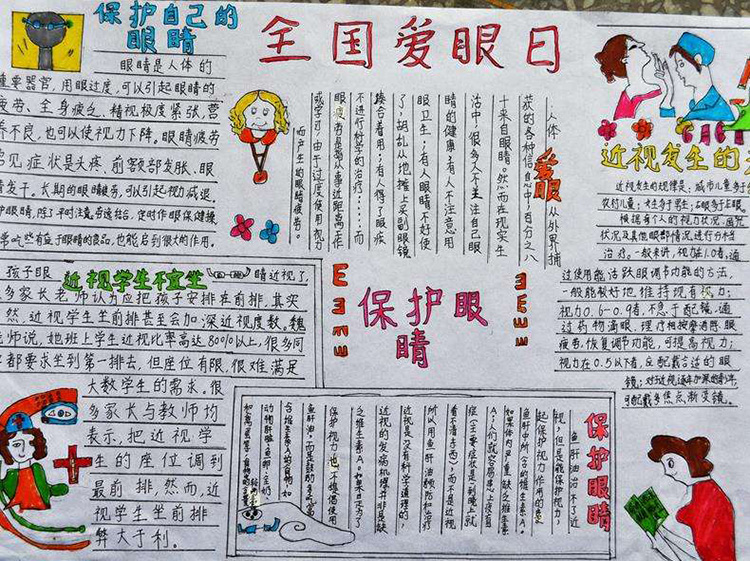 全国爱眼日
保护自己的
眼睛
眼睛是人体的
重要器官，用眼过度，可以引起眼睛的
疲劳、全身疲乏、精视极度紧张，营
养不良，也可以使视力下降。眼睛疲劳
常见症状是头疼、前额部发胀、眼
睛发干。长期的眼睛疲劳，可以引起视力减退。
护眼睛，除了平时注意劳逸结合，定时作眼保健操
常吃些有益于眼睛的食品，也能起到很大的作用。
人体
爱眼
从外界捕
获的各种信息中，百分之八
十来自眼睛。然而在现实生
活中，很多人不关注自己眼
睛的健康；有人不注意用
眼卫生；有人眼睛不好使
了，胡乱从地摊上买副眼镜
凑合着用；有人得了眼疾
不进行科学的治疗……而
眼疲劳是需从事近距离工作
或学习，由于过度使用视力
而产生的眼睛疲劳。
近视发生的
近视发生的规律是：城市儿童多于
农村儿童；女生多于男生；右眼多于左眼。
根据每个人的视力状况、屈光
状况及其他眼部情况进行分档
治疗。一般来讲，视在1.0者，通
过使用能活跃眼调节功能的方法，
一般能较好地维持现有视力；
视力0.6-0.9者，不急于配镜，通
过药物滴眼、理疗和按摩消除眼
疲劳，恢复调节功能，可提高视力；
视力在0.5以下者，应配戴合适的眼
镜；对近视逐年加深的青少年，
可配戴多焦点渐变镜。
近视学生不宜坐
孩子眼
睛近视了，
多家长老师认为应把孩子安排在前排，其实
然，近视学生坐前排甚至会加深近视度数。魏
老师说，她班上学生近视比率高达80%以上，很多同
都要求坐到第一排去，但座位有限，很难满足
大数学生的需求。很
多家长与教师均
表示，把近视学
生的座位调到
最前排，然而，近
视学生坐前排
弊大于利。
保护眼
睛
保护眼睛
鱼肝油治不了近
视，但是能保护视力，
起保护视力作用的是
鱼肝中所含的维生素A。
如果体内严重缺乏维生素
A，人们就容易患上夜盲
症(主要症状是一到晚上就
看不清东西)，而不是近视
所以用鱼肝油预防和治疗
近视是没有科学道理的，
近视的发病机理并非是缺
乏维生素A。如果只是为了
保护视力，也不提倡使用
鱼肝油，而是鼓励多吃富
含维生素A的食物，如
动物肝脏、鱼卵、全奶、